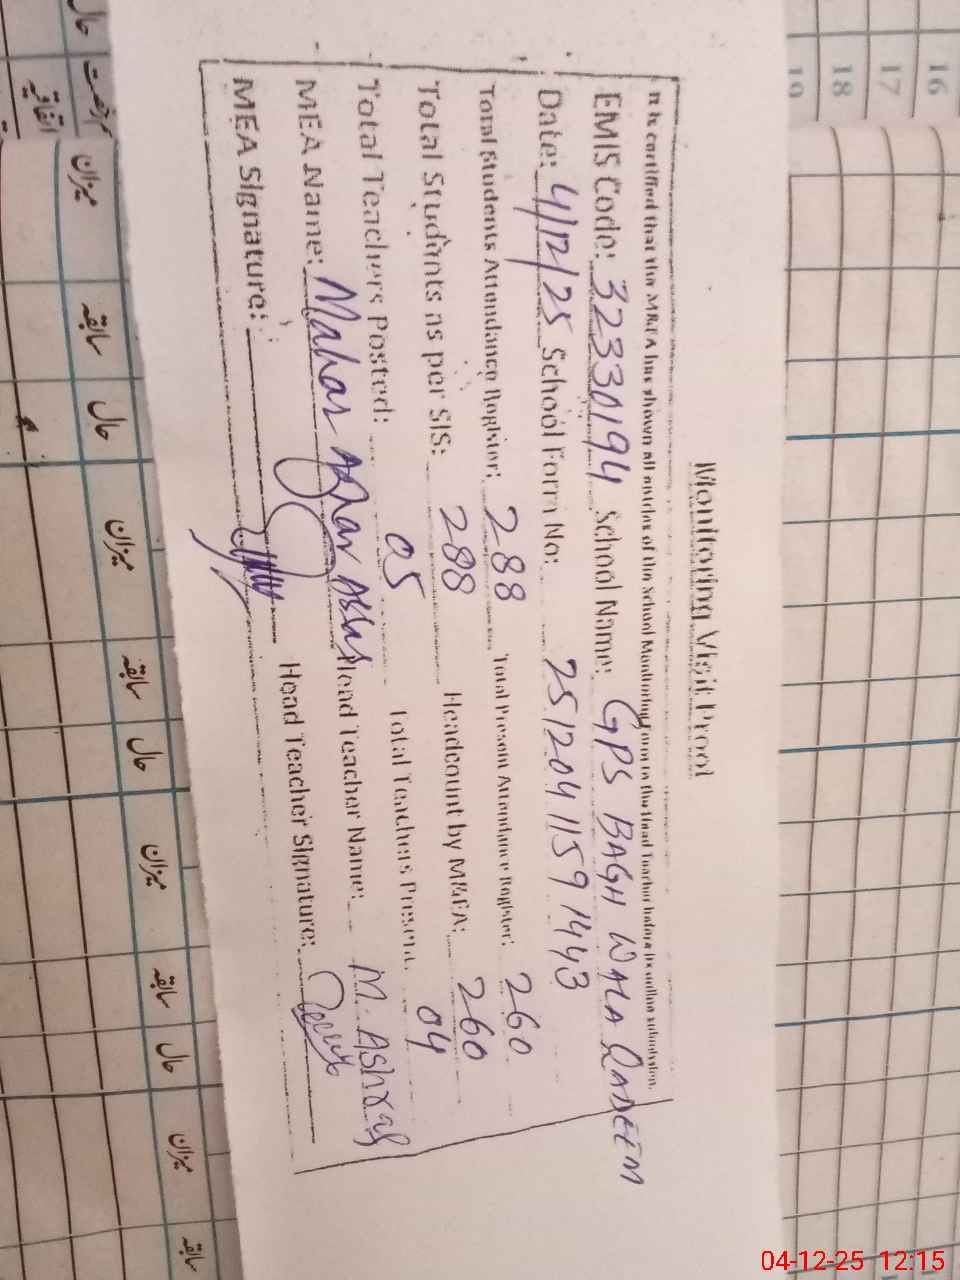 Monitoring Visit Proof
It is certified that the M&EA has shown all entries of the School Monitoring Form to the Head Teacher before its online submission.
EMIS Code: 32330194 School Name: GPS BAGH WALA QADEEM
Date: 4/12/25 School Form No: 251204 1159 1443
Total Students Attendance Register: 288 Total Present Attendance Register: 260
Total Students as per SIS: 288 Headcount by M&EA: 260
Total Teachers Posted: 05 Total Teachers Present: 04
MEA Name: Mahar Head Teacher Name: M. Ashraf
MEA Signature: Head Teacher Signature:
16
17
18
19
حال
رخصت اتفاقیہ
میزان
سابقہ
حال
میزان
سابقہ
حال
میزان
سابقہ
حال
میزان
سابقہ
04-12-25 12:15